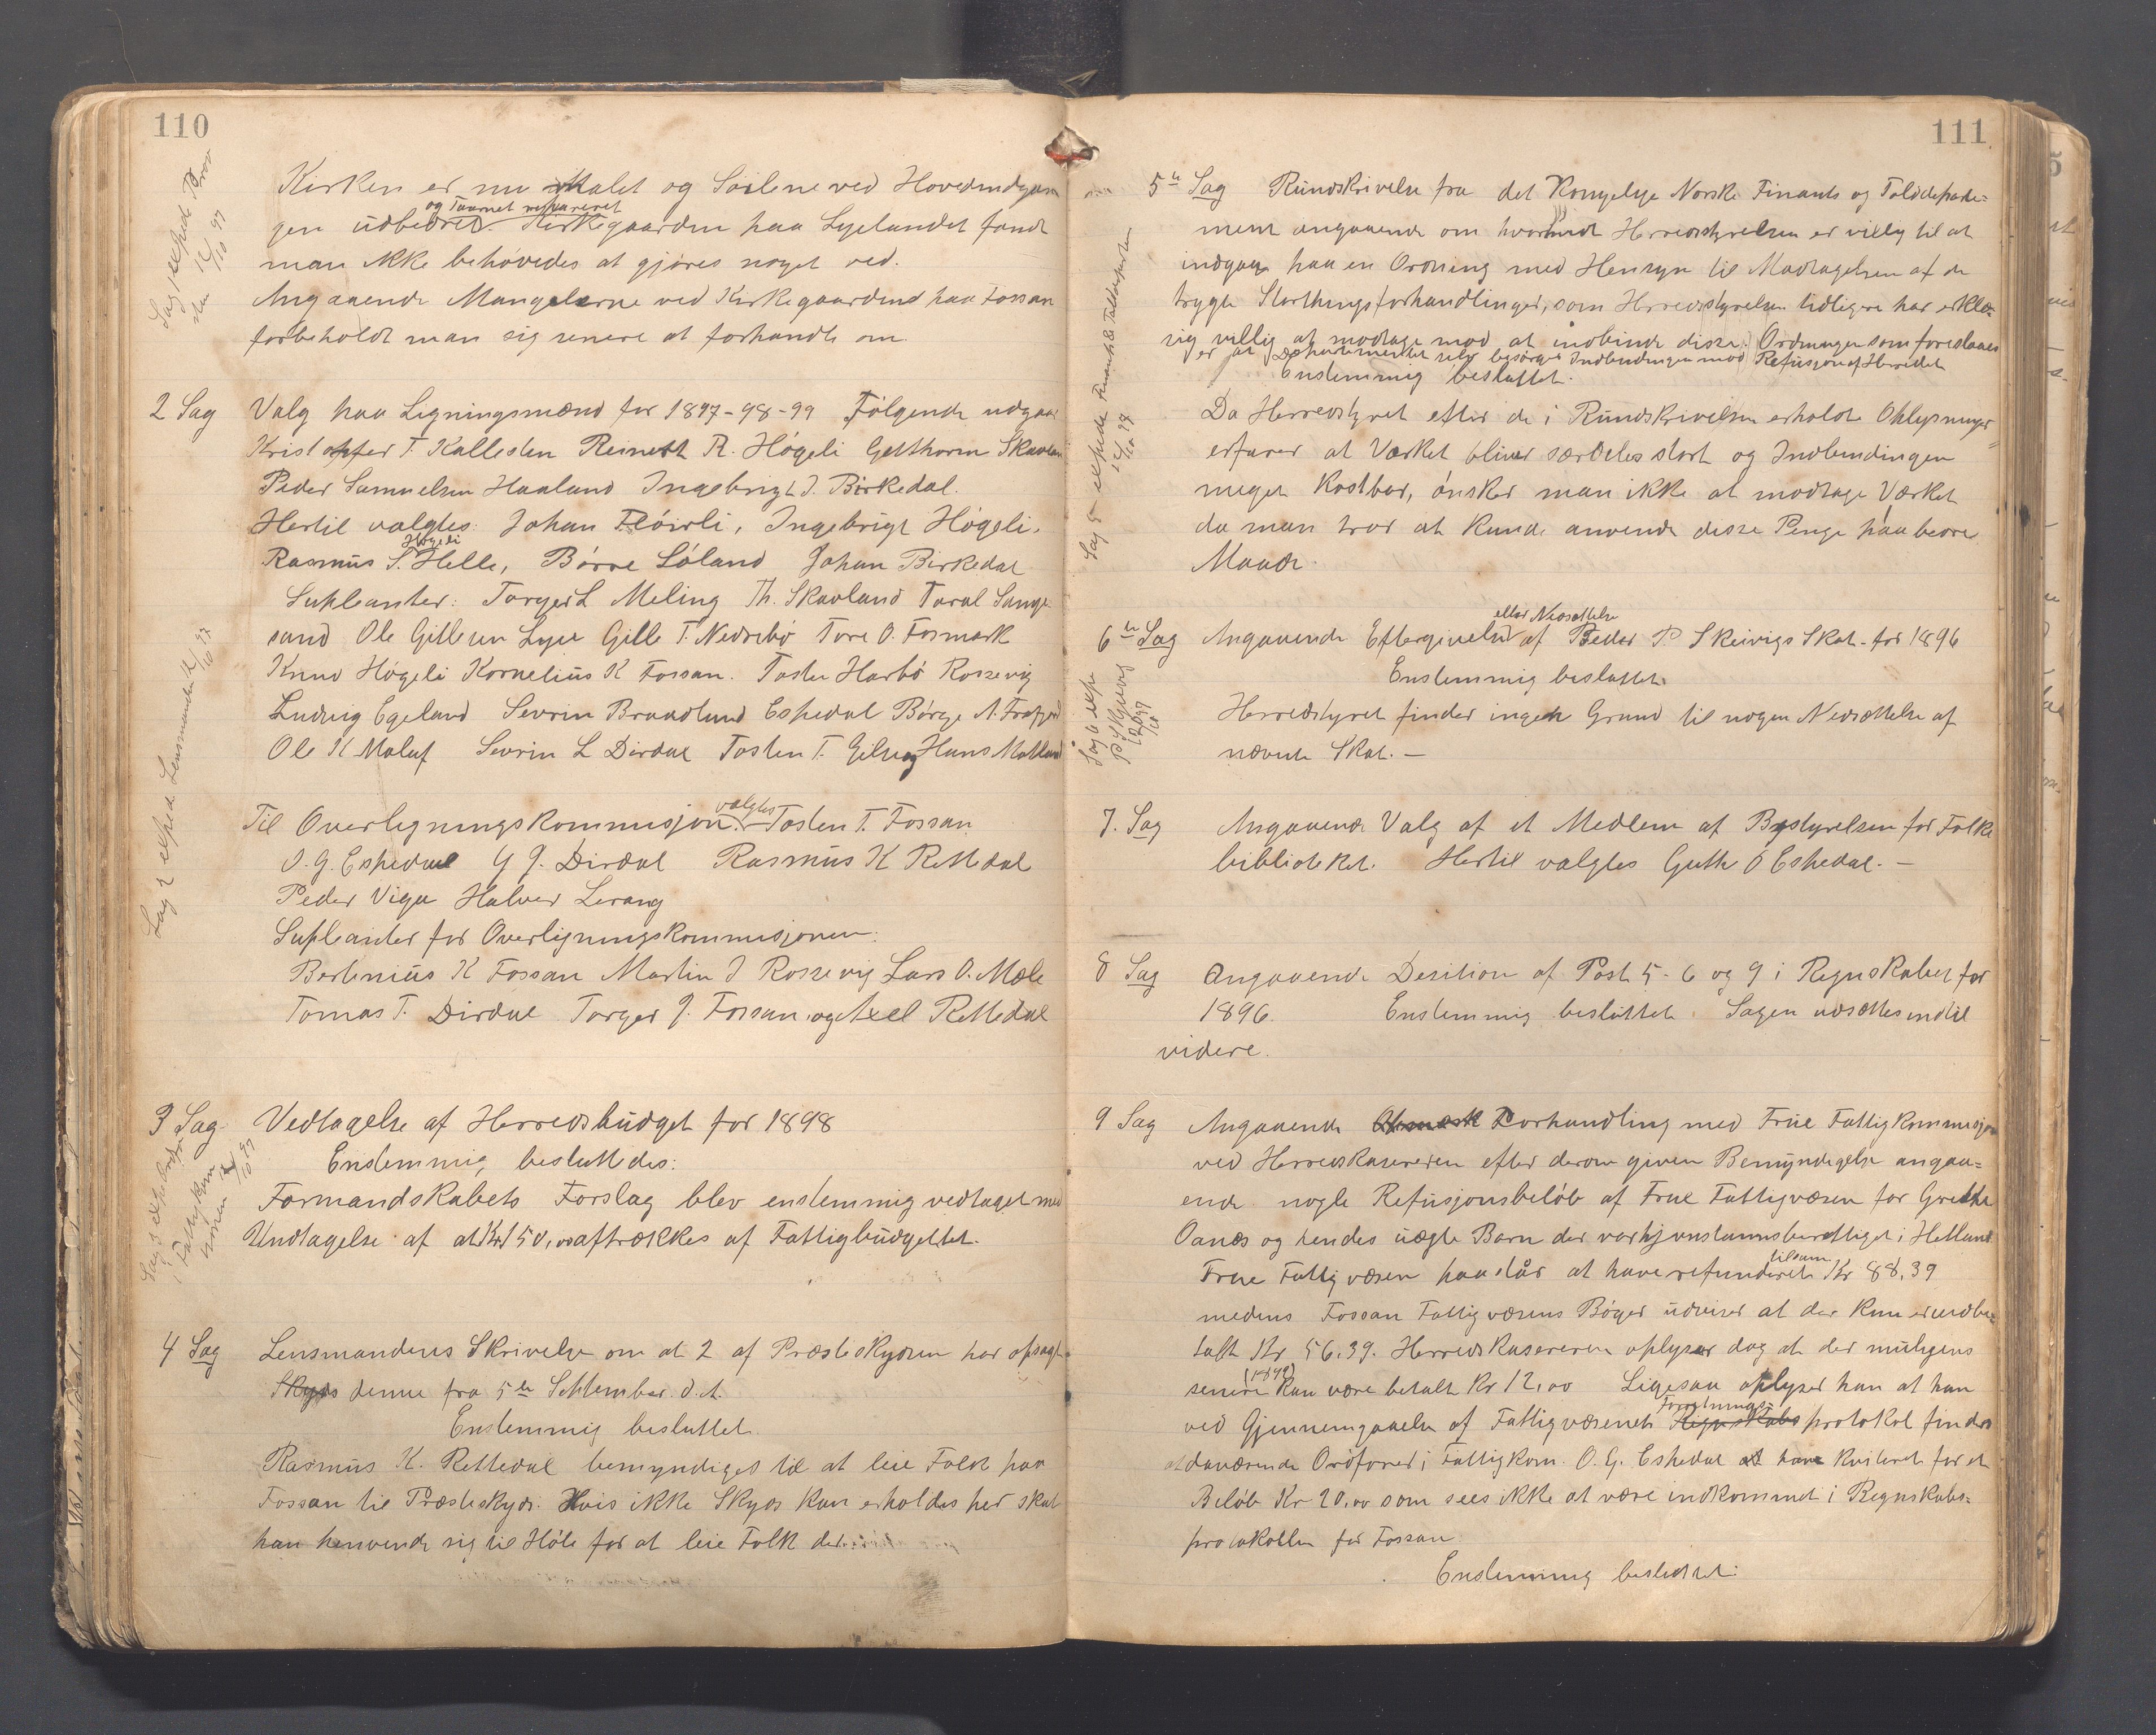 110
Kirken er nu Malet og Söilene ved Hovedindgan
og Taarnet repareret
gen udbedret. Kirkegaarden paa Lyselandet fandt
man ikke behövedes at gjöres noget ved.
Angaaende Manglerne ved Kirkegaarden paa Fossan
forbeholdt man sig senere at forhandle om.
Sag 1 exped Prov
den 14/10 97
2 Sag Valg paa Ligningsmænd for 1897-98-99 Fölgende udgaar
Kristoffer T. Kallesten Reinert R. Högeli Gutthorm Skavlan
Peder Samuelsen Haaland Ingebrigt J. Birkedal.
Hertil valgtes: Johan Flöirli, Ingebrigt Högeli,
Högeli
Rasmus S. Helle, Börre Löland Johan Birkedal
Supleanter: Torger L Meling Th. Skavland Taral Songe
sand Ole Gillesen Lyse Gille T. Nedrebö Tore O. Fosmark
Knud Högeli Kornelius K Fossan. Tosten Harbö Rossevig
Ludvig Egeland Sevrin Bradland Espedal Börge A. Frafjord
Ole K Maluf Sevrin L Dirdal Tosten T. Gilje og Hans Matland
Sag 2 exped. Lensmanden 14/10 97
valgtes
Til Overligningskommisjon. Tosten T. Fossan
O. G. Espedal G G. Dirdal Rasmus K Rettedal
Peder Viga Halvor Lerang
Supleanter for Overligningskommisjonen:
Bertinius K Fossan Martin J Rossevig Lars O. Mæle
Tomas T. Dirdal Torger J. Fossan og Axel Rettedal
3 Sag Vedtagelse af Herredsbudget for 1898
Enstemmig besluttedes:
Formandskabets Forslag blev enstemmig vedtaget med
Undtagelse af at Kr 150,00 aftrækkes af Fattigbudgettet.
4 Sag Lensmandens Skrivelse om at 2 af Præsteskydsen har opsagt
Skyds denne fra 5te September d. A.
Enstemmig besluttet
Rasmus K. Rettedal bemyndiges til at leie Folk paa
Fossan til Præsteskyds. Hvis ikke Skyds kan erholdes her skal
han henvende sig til Höle for at leie Folk der.
111
5te Sag Rundskrivelse fra det Kongelige Norske Finants og Tolddeparte=
ment angaaende om hvorvidt Herredsstyrelsen er villig til at
indgaa paa en Ordning med Hensyn til Modtagelsen af de
trygte Storthingsforhandlinger, som Herredsstyrelsen tidligere har erklæ-
sig villig at modtage mod at indbinde disse. Ordningen som foreslaaes
er at Departementet selv besörger Indbindingen mod Refusjon af Herredet
Enstemmig besluttet.
Da Herredstyret efter de i Rundskrivelsen erholdte Oplysninger
erfarer at Værket bliver særdeles stort og Indbindingen
meget kostbar, önsker man ikke at modtage Værket
da man tror at kunde anvende disse Penge paa bedre
Maade.
Sag 5 exped Finants & Tolddeparten
14/10 97
eller Nedsættelse
6te Sag Angaaende Eftergivelse af Peder P. Skeivigs Skat for 1896
Enstemmig besluttet
Herredstyret finder ingen Grund til nogen Nedsættelse af
nævnte Skat. —
7. Sag Angaaende Valg af et Medlem af Bestyrelsen for Folke
biblioteket. Hertil valgtes Guth O Espedal. —
8 Sag Angaaende Desition af Post 5-6 og 9 i Regnskabet for
1896. Enstemmig besluttet. Sagen udsættes indtil
videre.
9 Sag Angaaende Forhandling med Frue Fattigkommisjon
ved Herredskassereren efter derom given Bemyndigelse angaa=
ende nogle Refusjonsbelöb af Frue Fattigvæsen for Grethe
Oanes og hendes uægte Barn der var hjemstavnsberettiget i Hetland
tilsam
Frue Fattigvæsen paastår at have refunderet Kr 88,39
medens Fossan Fattigvæsens Böger udviser at der kun er indbe-
talt Kr 56,39. Herredskassereren oplyser dog at der muligens
senere kan være betalt Kr 12,00 Ligesaa oplyser han at han
Forretnings-
ved Gjennemgaaelse af Fattigvæsenets Regnskabs protokol finder
at daværende Ordförer i Fattigkom. O. G. Espedal at have kviteret for et
Belöb Kr 20,00 som sees ikke at være indkommet i Regnskabs=
protokollen for Fossan
Enstemmig besluttet: